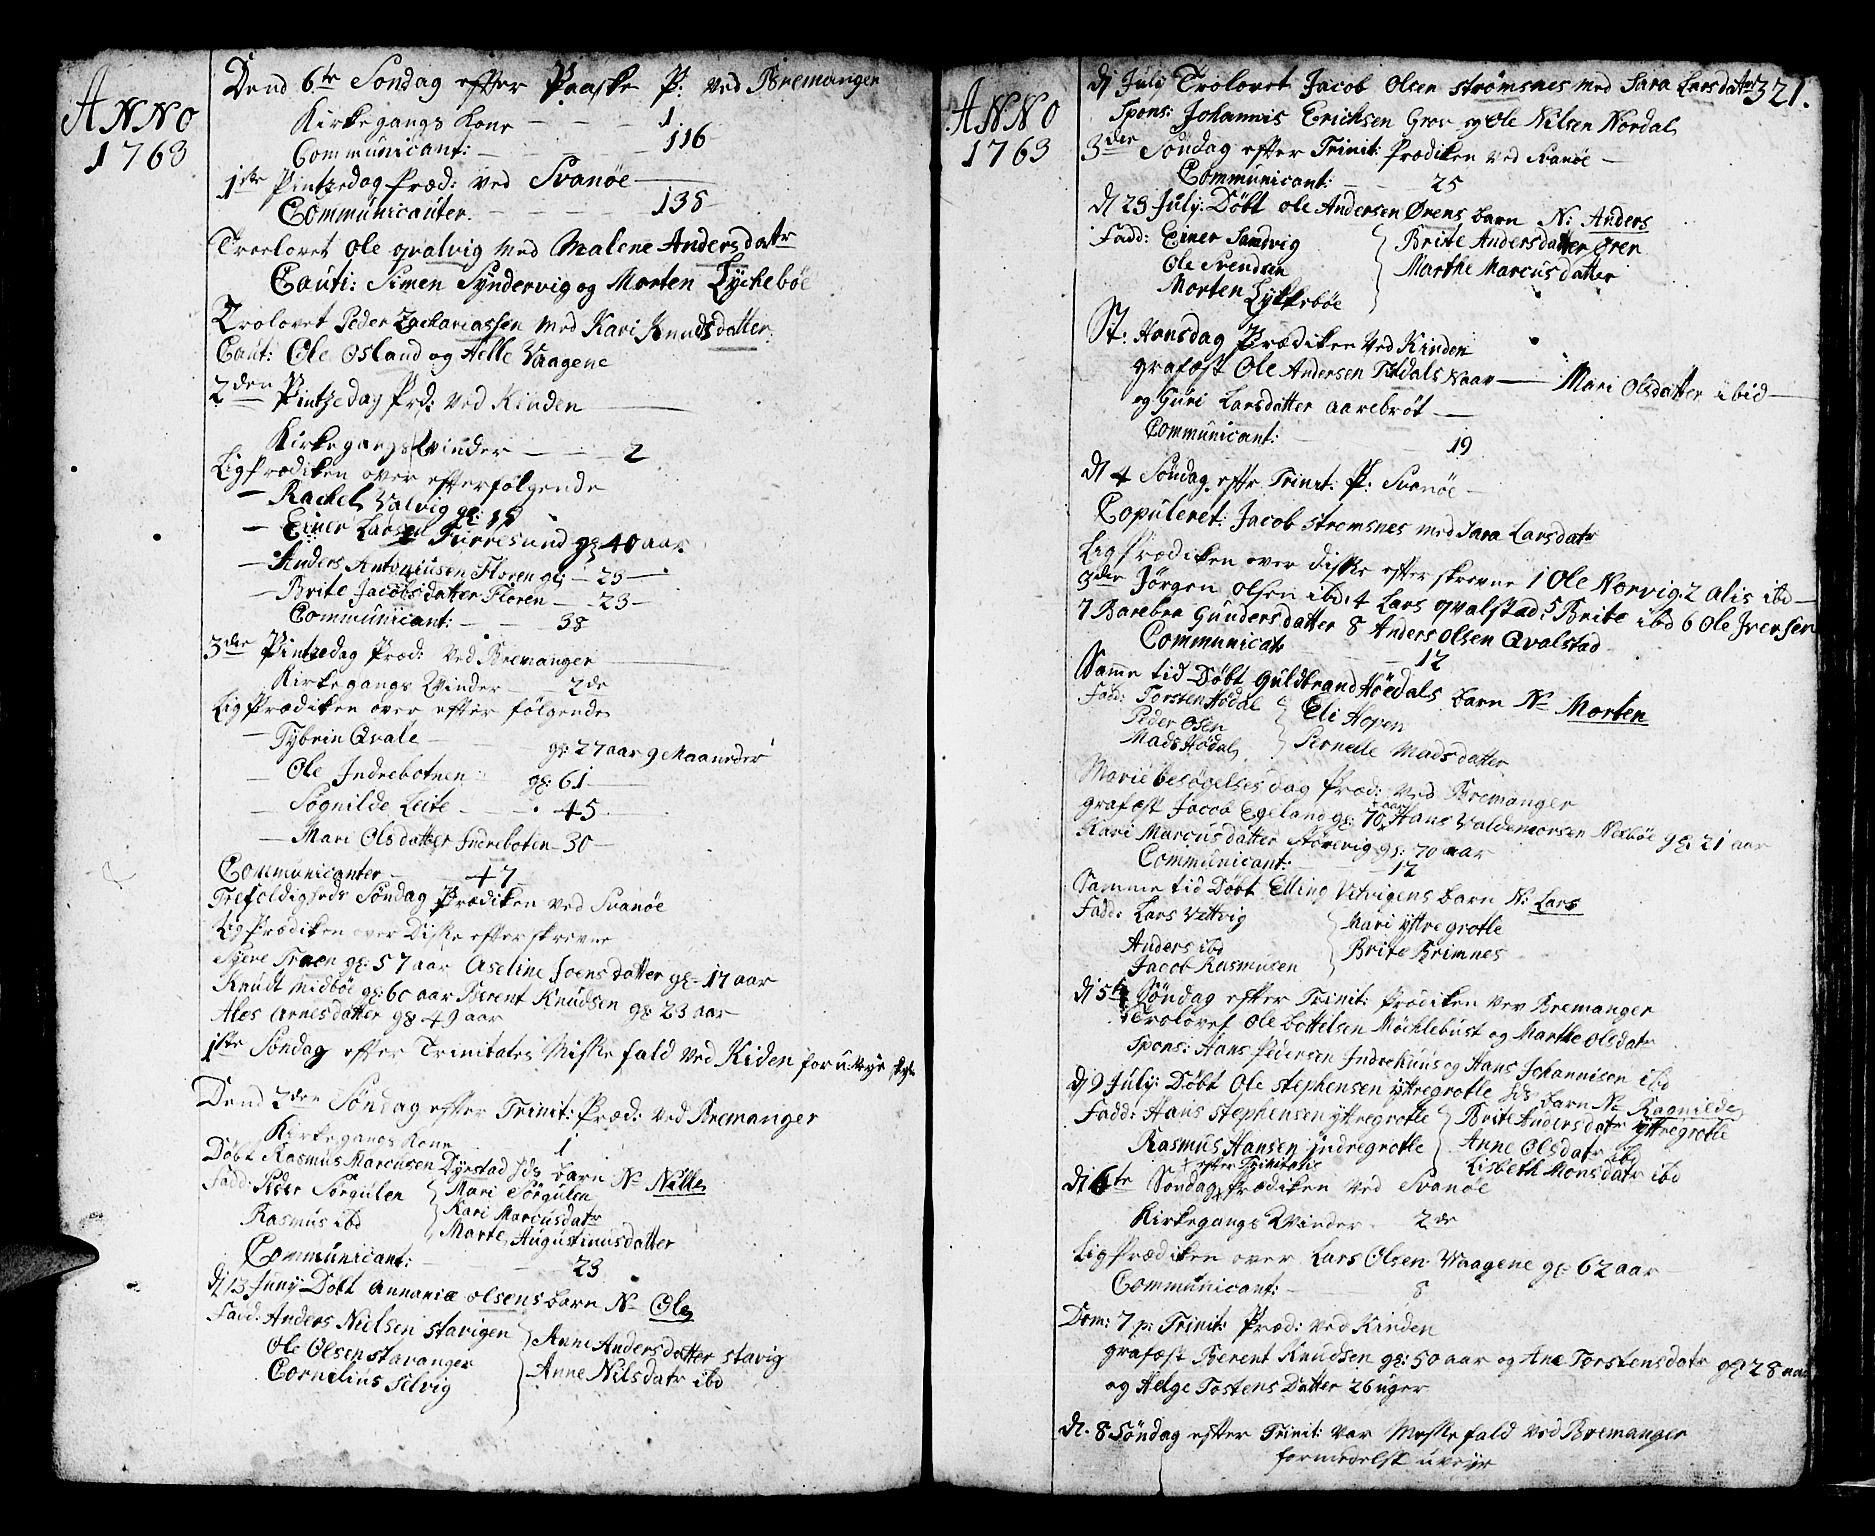 ANNO
1763
Dend 6te Søndag efter Paaske P: ved Bremanger
Kirkegangs Kone - - - 1
Communicant: - - - 116
1ste Pintzedag Præd: ved Svanøe
Communicanter. - - - 135
Troelovet Ole qvalvig med Malene Andersdatr
Cauti: Simen Syndervig og Morten Lychebøe
Trolovet Peder Zachariassen med Kari Knudsdatter
Caut: Ole Osland og Helle Vaagene
2den Pintzedag Prd: ved Kinden
Kirkegangs Qvinder - - - 2
Lig Prædiken over efterfølgende
- Rachel Valvig gl: 15
- Einer Larsen Furresund gl 40 aar
- Anders Antoniusen Floren gl: - 25 -
- Brite Jacobsdatter Floren - - 23 -
Communicant: - - 38
3die Pintzedag Præd: ved Bremanger
Kirkegangs Qvinder - 2de
Lig Prædiken over efter følgende
- Tybrin Qvale - gl: 27 aar 9 Maaneder
- Ole Indrebotnen - gl: 61 -
- Søgnilde Leite - - 45
- Mari Olsdatter Indreboten - 30 -
Communicanter - 47
Trefoldigheds Søndag Prædiken ved Svanøe
Lig Prædiken over Disse efterskrevne
Siere Traen gl: 57 aar Aseline Joensdatter gl: 17 aar
Knudt Midbøe gl: 60 aar Berent Knudsen gl: 23 aar
Ales Arnesdatter gl 49 aar
1ste Søndag efter Trinitates Messefald ved Kiden for uveye skyl
Dend 2den Søndag efter Trinit: Præd: ved Bremanger
Kirkegangs Kone - 1
Døbt Rasmus Marcusen Dyrstad Ids barn N: Nille
Fadd: Peder Sørgulen } Mari Sørgulen
Rasmus ibd } Kari Marcusdatr
Marte Augustinusdatter
Communicant: - - 23
d 13 Juny Døbt Annaniæ Olsens barn N: Ole
Fadd: Anders Nielsen Stavigen } Anne Andersdatter Stavig
Ole Olsen Stavanger
Cornelius Selvig } Anne Nilsdatr ibd
ANNO
1763
321.
d Juli Trolovet Jacob Olsen Strømsnes med Sara Larsdatr
Spons: Johannis Erichsen Grov og Ole Nilsen Nordal
3der Søndag efter Trinit: Prædiken ved Svanøe -
Communicant: - 25
d 23 July: Døbt Ole Andersen Ørens barn N: Anders
Fadd: Einer Sandvig } Brite Andersdatter Ører
Ole Svendsen } Marthe Marcusdatter
Morten Lykkebøe
St: Hansdag Prædiken ved Kinden
grafæst Ole Andersen Naav - Mari Olsdatter ibid -
og Guri Larsdatter Aarebrøt -
Communicant: - 19
d 4 Søndag efter Trinit: P: Svanøe -
Copuleret: Jacob Strømsnes med Sara Larsdatr
Lig Prædiken over disse efterskrevne 1 Ole Norvig 2 Alis ibd -
3der Jørgen Olsen ibd: 4 Lars Qvalstad 5 Brite ibd 6 Ole Iversen
7 Barebra Gundersdatter 8 Anders Olsen Qvalstad
Communicat - 12
Samme tid Døbt Guldbrand Høedals barn N: Morten
Fad: Torsten Hødal } Eli Hopen
Peder Osen
Mads Hødal } Pernelle Madsdatter
Marie besøgelses dag Præd: ved Bremanger
grafæst Jacob Egeland gl: 70 aar Hans Valdemorsen Nexbøe gl: 21 aar
Kari Marcusdatter Størevig gl: 70 aar
Communicant: - 12
Samme tid Døbt Elling Vetvigens barn N: Lars
Fadd: Lars Vettvig } Mari yttregrotle
Anders ibd
Jacob Rasmusen } Brite Brimnes
d 5te Søndag efter Trinit: Prædiken vev Bremanger
Trolovet Ole Bottelsen Møchlebust og Marthe Olsdatr
Spons: Hans Pedersen Indrehuus og Hans Johannisen ibd
d 9 July: Døbt Ole Stephensen yttregrotle Ids barn N: Ragnilde
Fadd: Hans Stephensen yttregrotle } Brite Andersdatr yttregrotle
Rasmus Hansen Indregrotle } Anne Olsdatr ibd
Lisbeth Monsdatr ibd
d 6te Søndag efter Trinitatis Prædiken ved Svanøe
Kirkegangs Qvinder - 2de
Lig Prædiken over Lars Olsen Vaagene gl: 62 aar
Communicant: - 8
Dom: 7 p: Trinit: Præd: ved Kinden
grafæst Berent Knudsen gl: 50 aar og Ane Torstensdatr gl 28 aar
og Helge Tostens Datter 26 uger
d. 8 Søndag efter Trinit: var Messefald ved Bremanger
formedelst uveyr